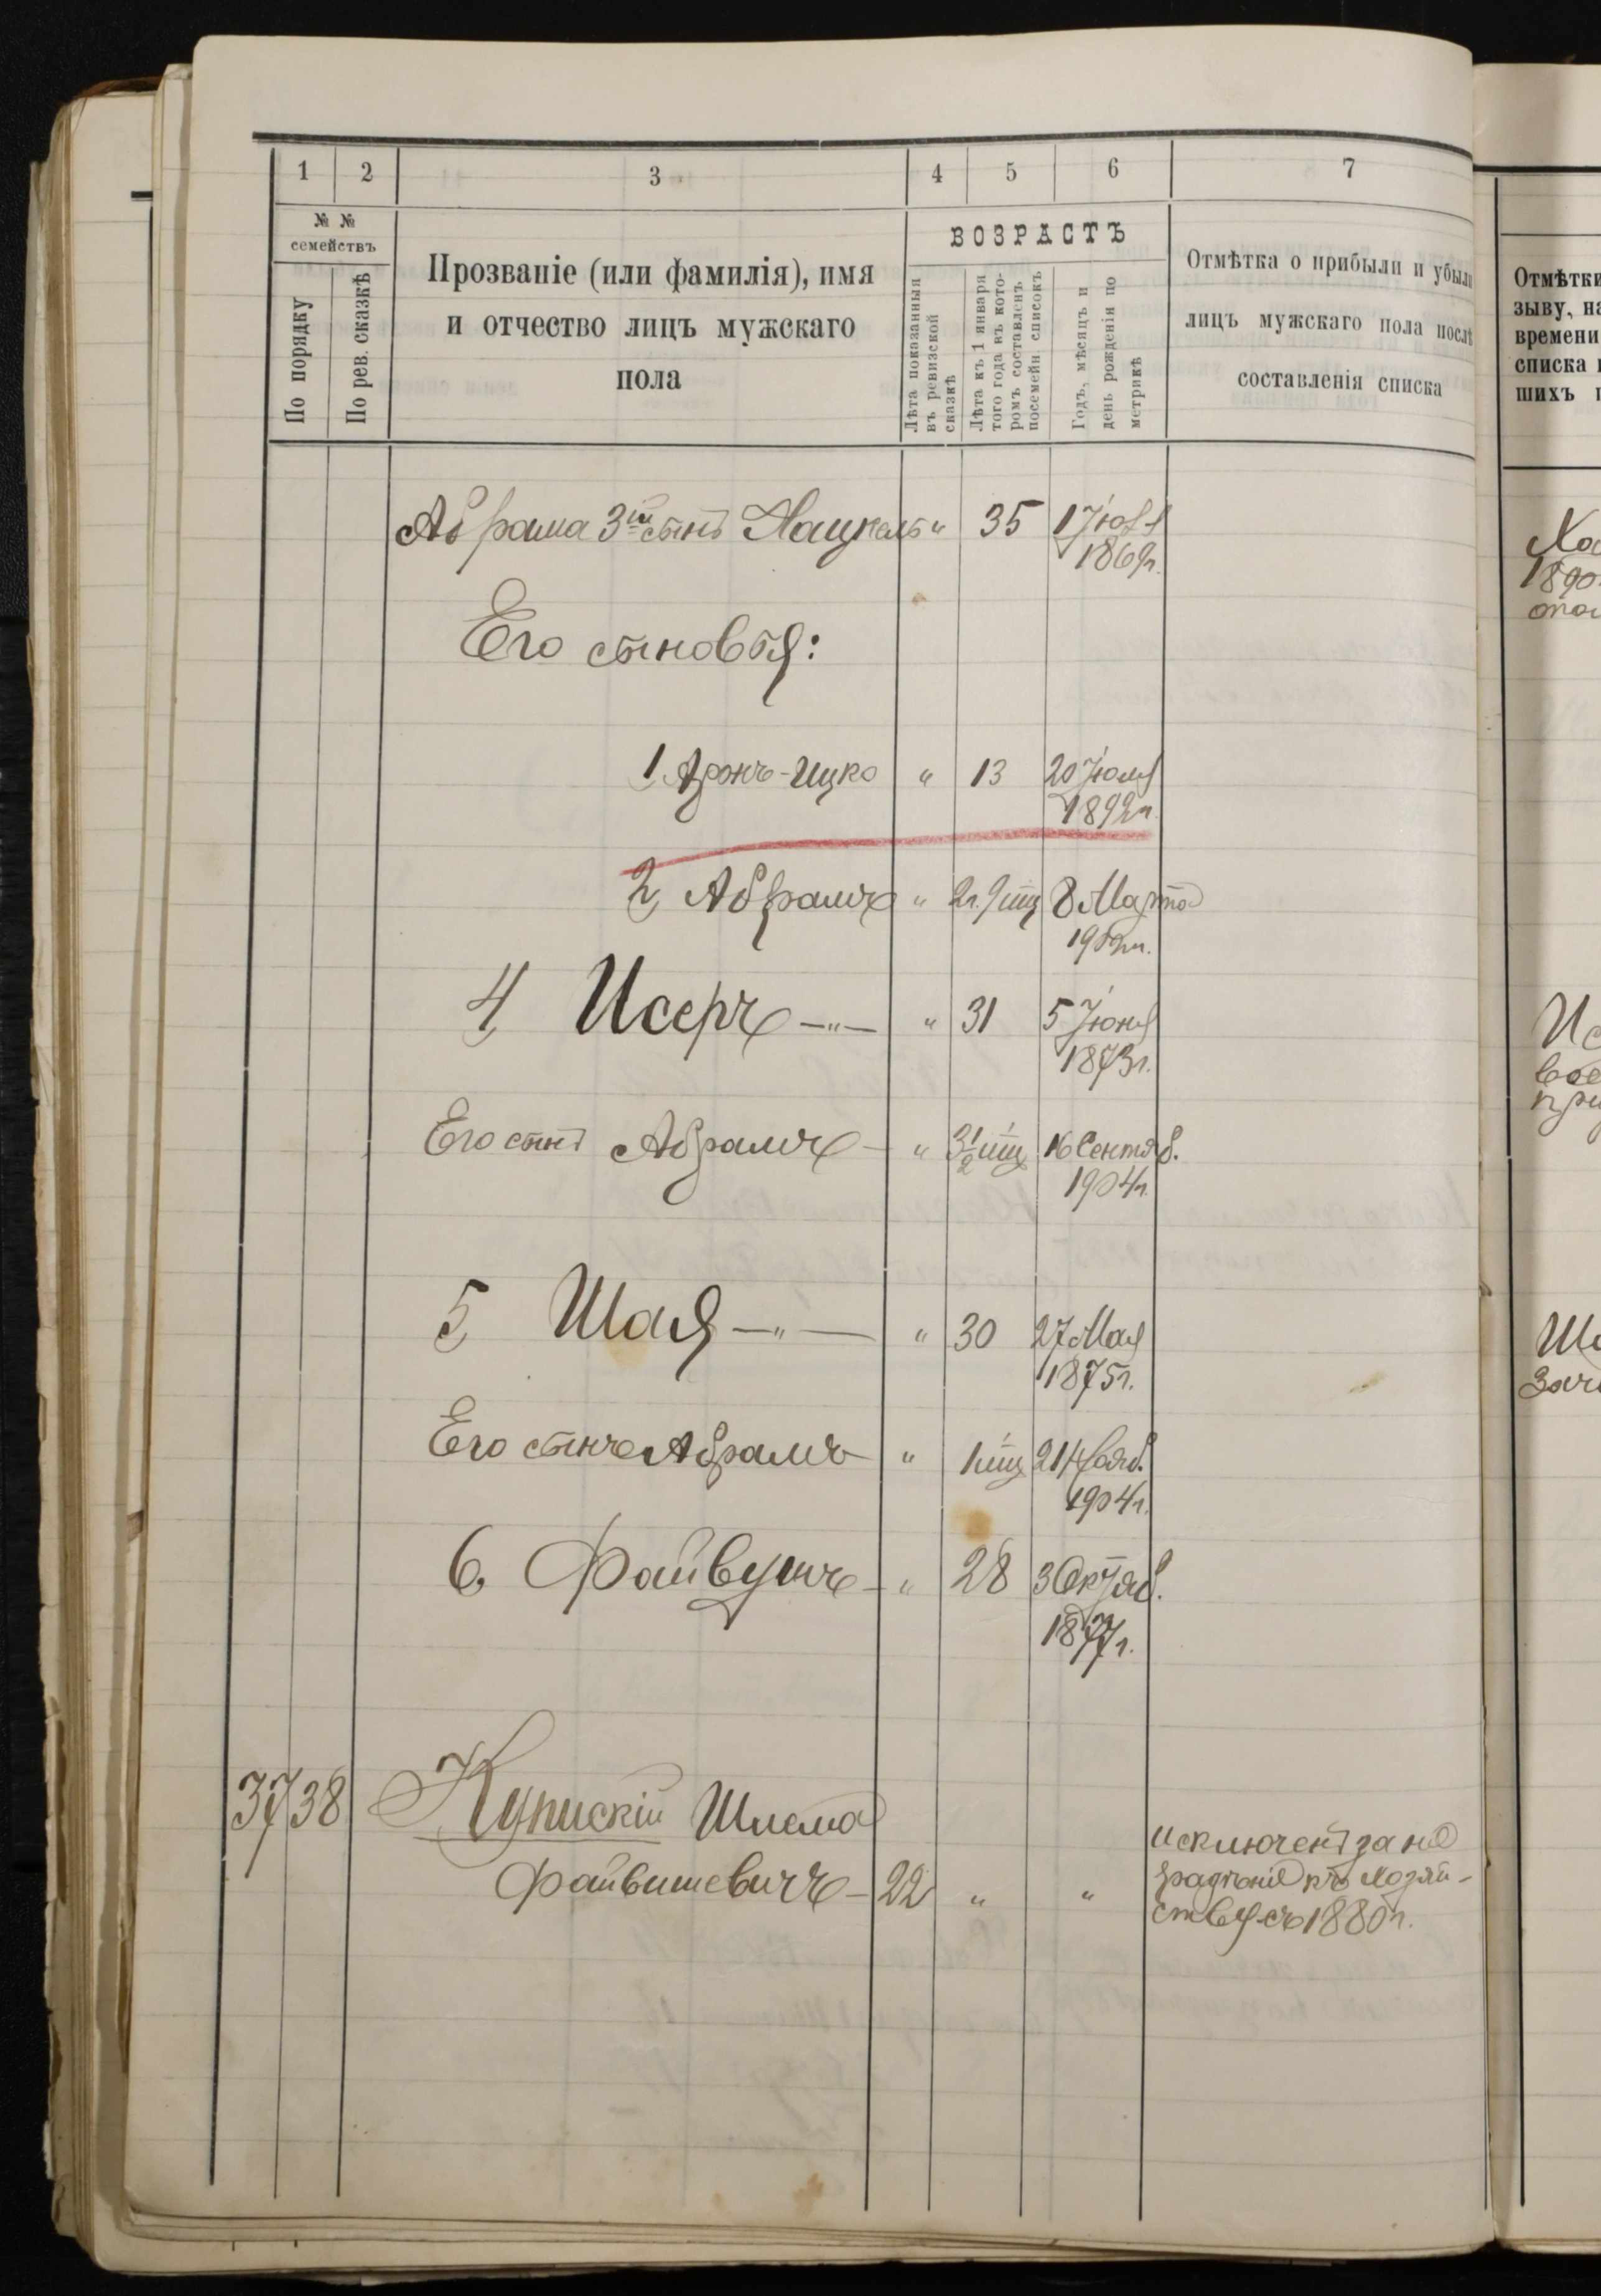 1 2 3 4 5 6 7
№ №
семействъ
По порядку
По рев. сказкѣ
Прозваніе (или фамилія), имя
и отчество лицъ мужскаго
пола
ВОЗРАСТЪ
Лѣта показанныя
въ ревизской
сказкѣ
Лѣта къ 1 января
того года въ кото-
ромъ составленъ
посемейн списокъ
Годъ, мѣсяцъ и
день рожденія по
метрикѣ
Отмѣтка о прибыли и убыли
лицъ мужскаго пола послѣ
составленія списка
Абрама 3й сынъ " 35
1869г.
Его сыновья:
1, Аронъ-Ицко " 13 20 Іюля
1892г.
2, Абрамъ " 2г. 9 мц 8 Марта
1902г.
4, Исеръ —"— " 31 5 Іюня
1873г.
Его сынъ Абрамъ " 3½ мц 16 Сентяб.
1904г.
5, Шая —"— " 30 27 Мая
1875г.
Его сынъ Абрамъ " 1 мц 21 Нояб.
1904г.
6, Файвушъ " 28 3 Октяб.
1877г.
37 38 Шлема
Файвишевичъ 22 " "
исключенъ за не
радѣніе къ хозяй-
ству съ 1880г.
Отмѣтки
зыву, на
времени
списка
шихъ
1890